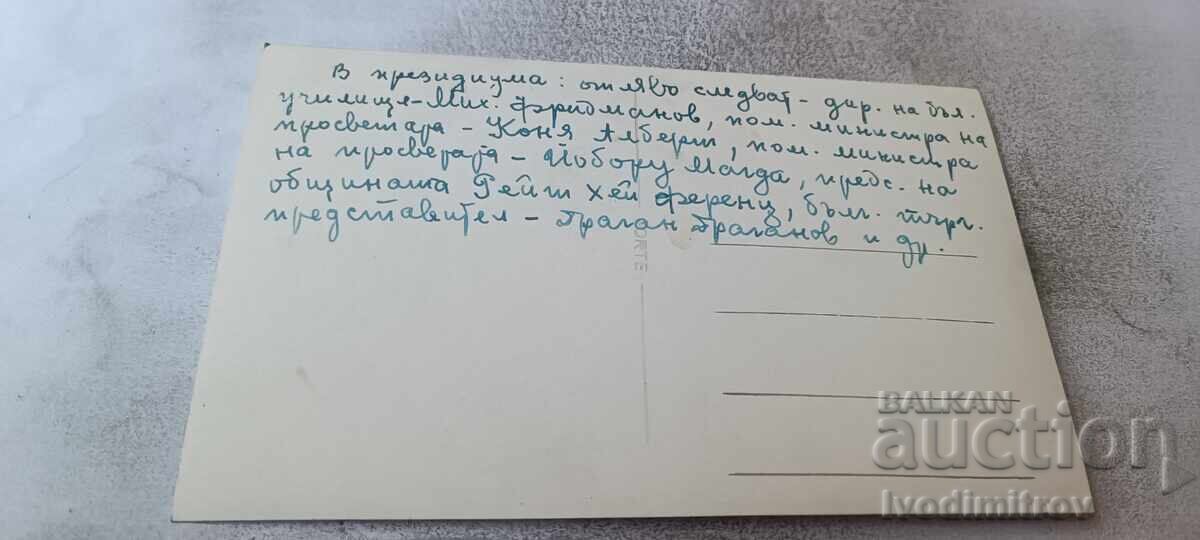 В президиума: отляво следват - дир. на бъл.
училище - Мих. Фридманов, пом. министра на
просветата - Коня Алберт, пом. министра
на просветата - Йобору Магда, предс. на
общината Рейтхей Ференц, бълг. търг.
представител - Драган Драганов и др.
ORTE
BALKAN
auction
Ivodimitrov